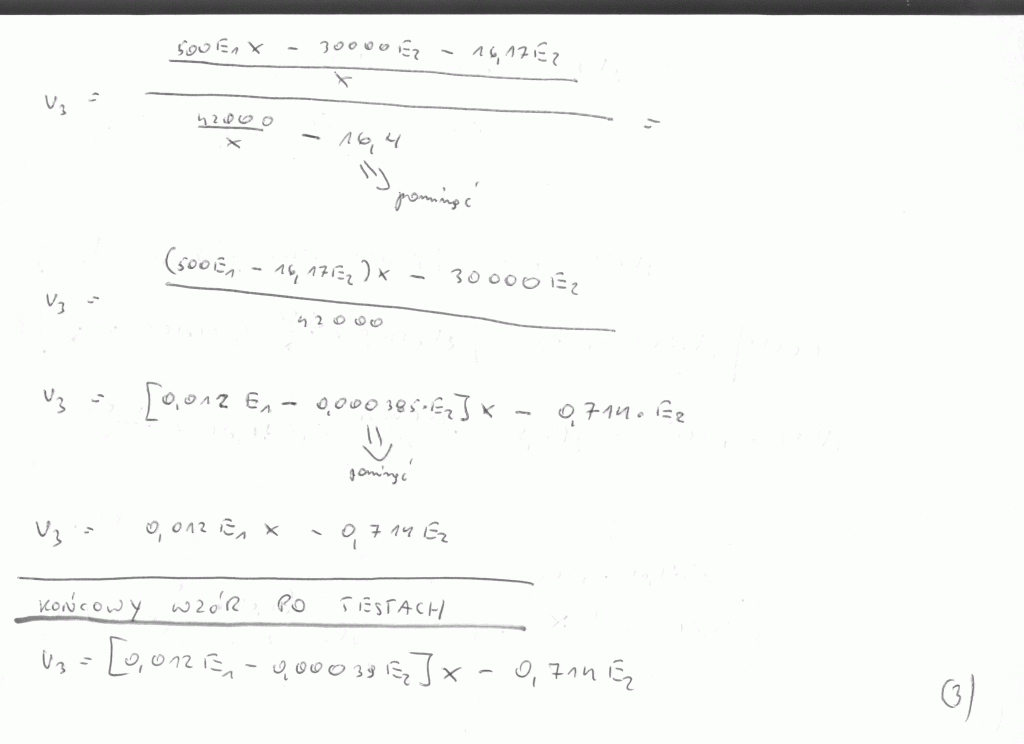 500E₁x - 30000E₂ - 16,17E₂
x
V₃ = =
42000
x
- 16,4
pominąć
V₃ = (500E₁ - 16,17E₂)x - 30000E₂
42000
V₃ = [0,012 E₁ - 0,000385·E₂]x - 0,714·E₂
pominąć
V₃ = 0,012 E₁ x - 0,714 E₂
KOŃCOWY WZÓR PO TESTACH
V₃ = [0,012 E₁ - 0,00039 E₂]x - 0,714 E₂
(3)